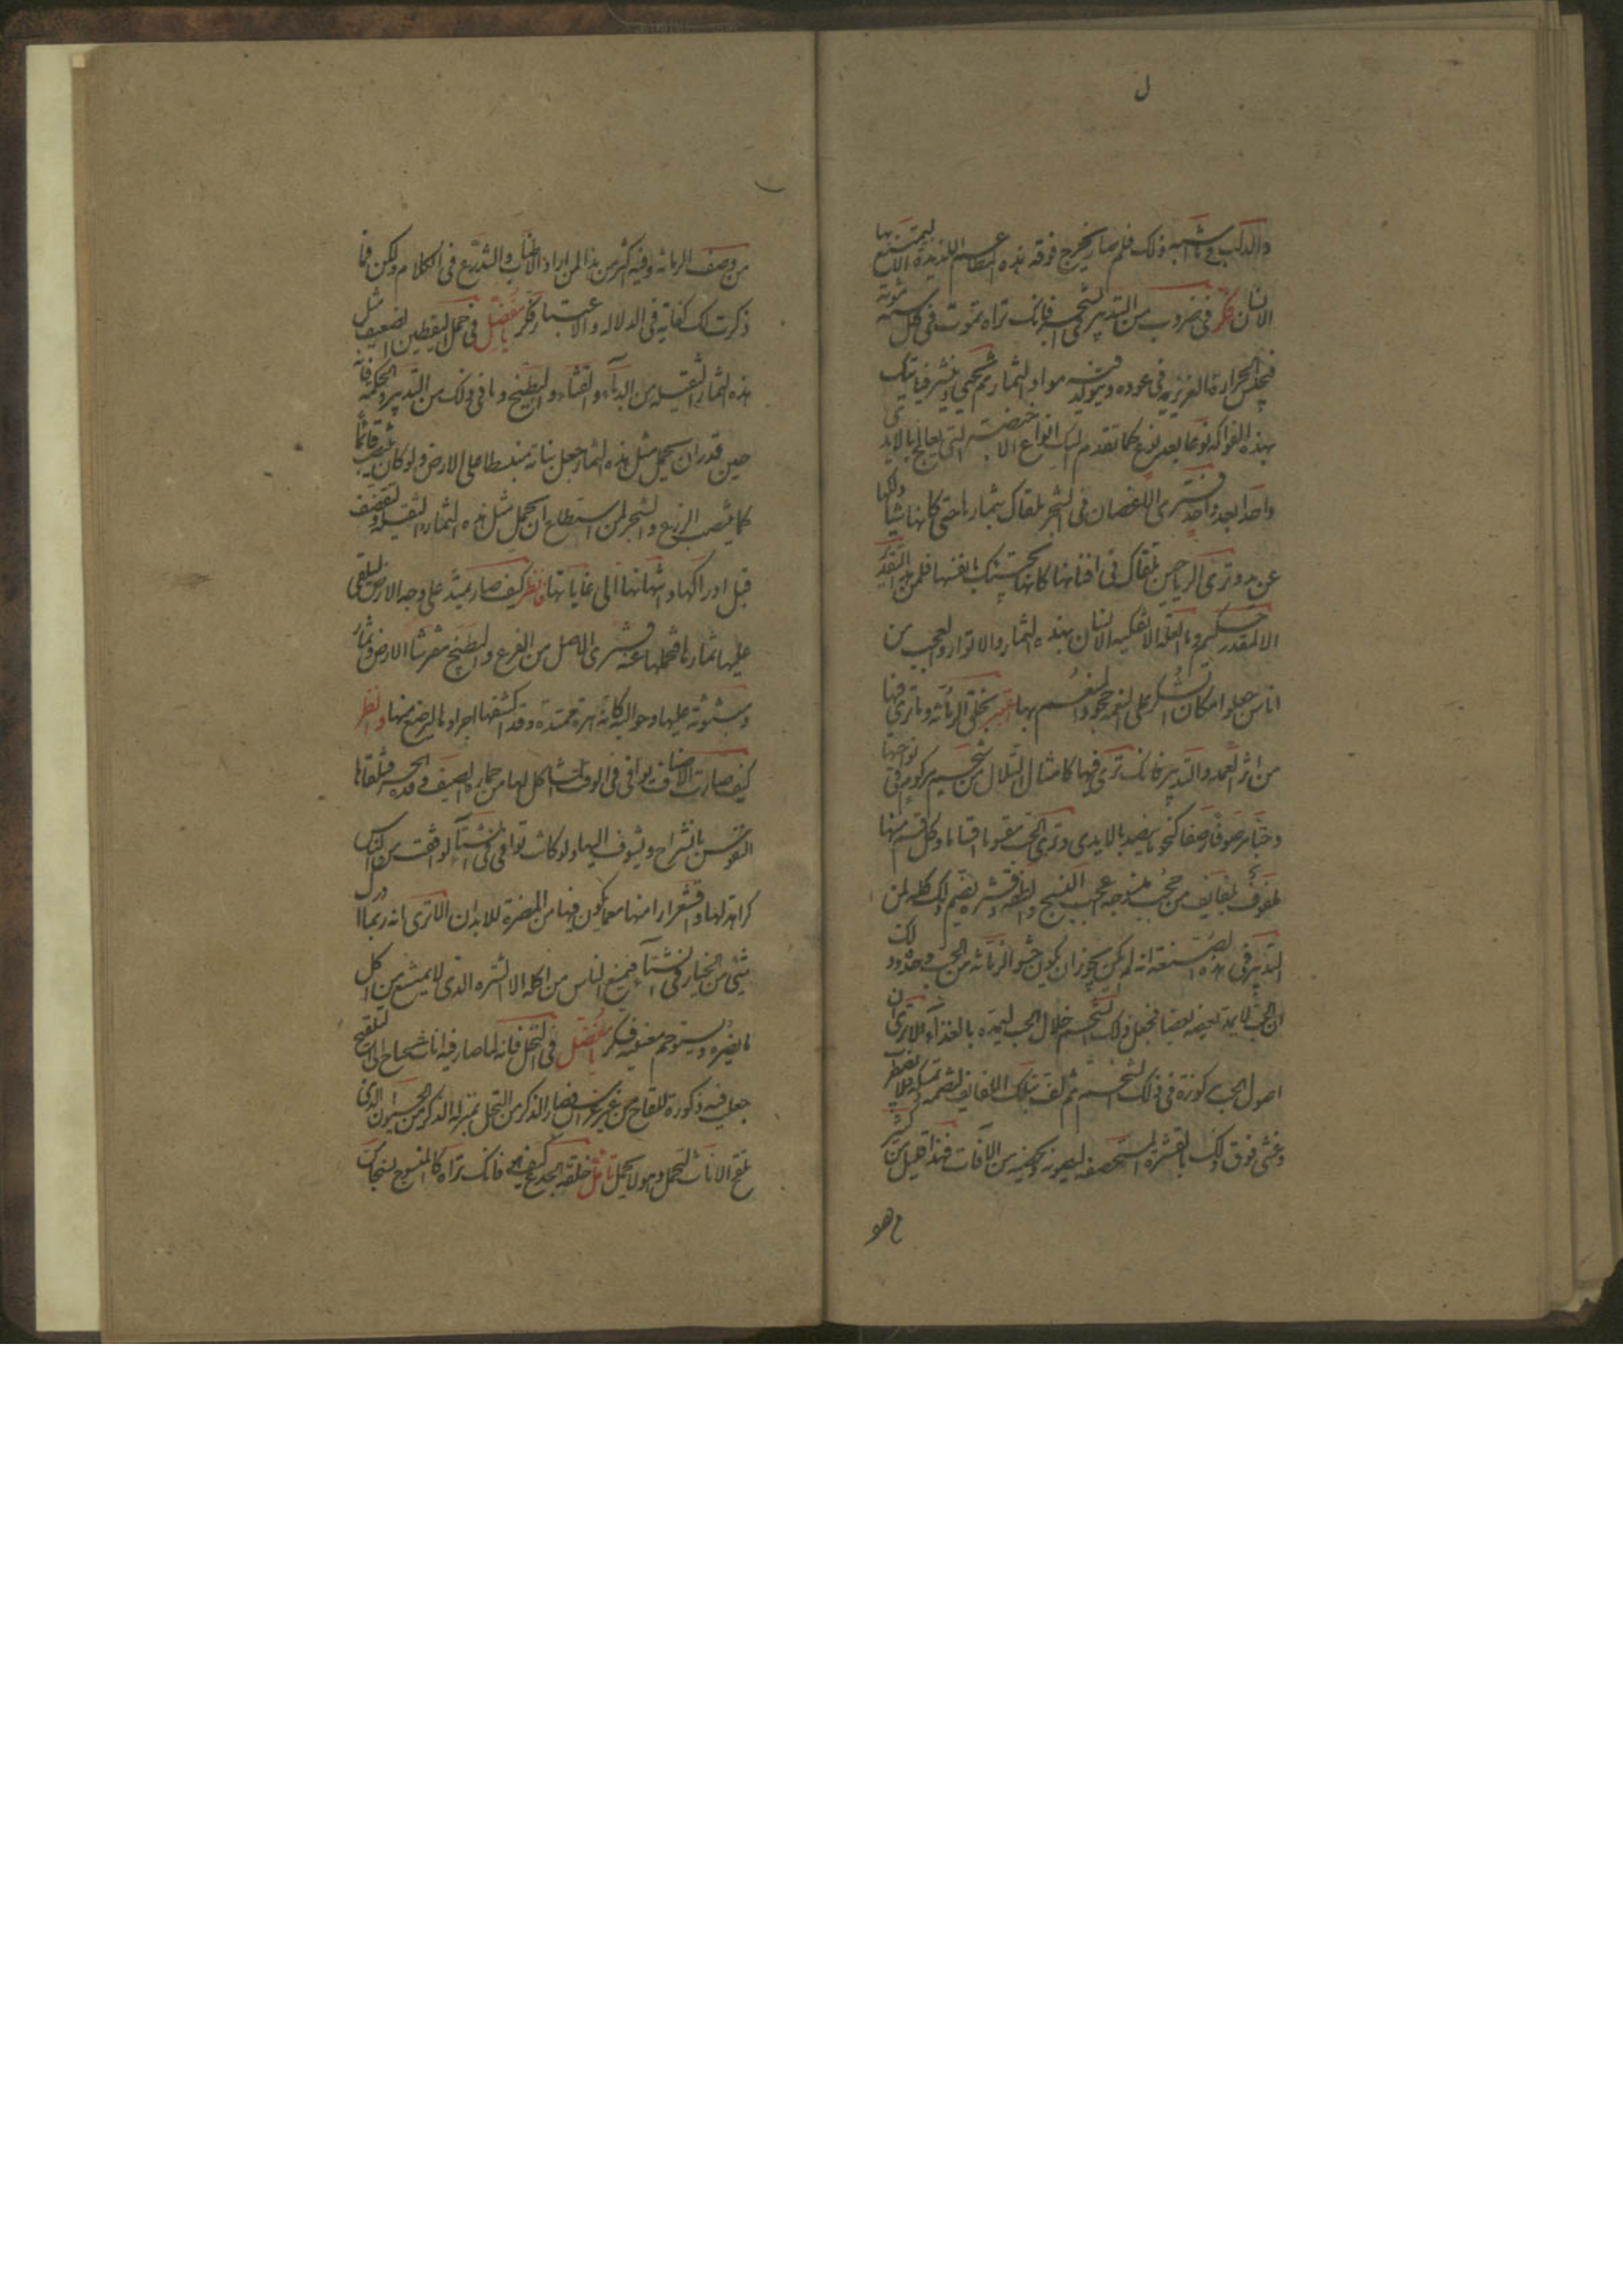 ل
والدلب وما اشبه ذلك فلم صار يخرج فوقه هذه المطاعم اللذيذة الا ليستمتع بها
الانسان فكر في ضروب من التدبير في الشجر فانك تراه يموت في كل سنة موتة
فيحتبس الحرارة الغريزية في عوده ويتولد فيه مواد الثمار ثم تحيى وينتشر فياتيك
بهذه الفواكه نوعا بعد نوع كما تقدم اليك انواع الاخبصة التي تعالج بالايدى
واحدا بعد واحد فترى الاغصان في الشجر تلقاك بثمارها حتى كانها تناولكها
عن يد وترى الرياحين تلقاك في افنانها كانها تجيئك بانفسها فلمن هذا التقدير
الا لمقدر حكيم وما العلة الا تفكيه الانسان بهذه الثمار والانوار والعجب من
اناس جعلوا مكان الشكر على النعمة جحود المنعم بها اعتبر بخلق الرمانة وما ترى فيها
من اثر العمد والتدبير فانك ترى فيها كامثال التلال من شحم مركوم في نواحيها
وحبا مرصوفا رصفا كنحو ما ينضد بالايدى وترى الحب مقسوما اقساما وكل قسم منها
ملفوف بلفايف من حجب منسوجة اعجب النسج والطفه وقشره يضم ذلك كله فمن
التدبير في هذه الصنعة انه لم يكن يجوز ان يكون حشو الرمانة من الحب وحده وذلك
ان الحب لا يمد بعضه بعضا فجعل ذلك الشحم خلال الحب ليمده بالغذاء الا ترى ان
اصول الحب مركوزة في ذلك الشحم ثم لف بتلك اللفايف لتضمه وتمسكه فلا يضطرب
وغشى فوق ذلك بالقشرة المستحصفة ليصونه ويحصنه من الآفات فهذا قليل من كثير
من وصف الرمانة وفيه اكثر من هذا لمن اراد الاطناب والتذرع في الكلام ولكن فيما
ذكرت لك كفاية في الدلالة والاعتبار فكر يا مفضل في حمل اليقطين الضعيف مثل
هذه الثمار الثقيلة من الدباء والقثاء والبطيخ وما في ذلك من التدبير والحكمة فانه
حين قدر ان يحمل مثل هذه الثمار جعل نباته منبسطا على الارض ولو كان ينتصب قائما
كما ينتصب الزرع والشجر لما استطاع ان يحمل مثل هذه الثمار الثقيلة ولتقصف
قبل ادراكها وانتهائها الى غاياتها فانظر كيف صار يمتد على وجه الارض ليلقى
عليها ثماره فتحملها عنه فترى الاصل من القرع والبطيخ مفترشا الارض وثماره
مبثوثة عليها وحواليه كانه هرة ممتدة وقد اكتنفها اجراؤها لترضع منها وانظر
كيف صارت الاصناف توافى في الوقت المشاكل لها من حمارة الصيف ووقدة الحر فتلقاها
النفوس بانشراح وتشوف اليها ولو كانت توافى في الشتاء لوافقت من الناس
كراهة لها واقشعرارا منها مع ما يكون فيها من المضرة للابدان الا ترى انه ربما ادرك
شئ من الخيار في الشتاء فيمتنع الناس من اكله الا الشره الذى لا يمتنع من اكل
ما يضره ويستوخم مغبته فكر يا مفضل في النخل فانه لما صار فيه اناث تحتاج الى التلقيح
جعلت فيه ذكورة للقاح من غير غراس فصار الذكر من النخل بمنزلة الذكر من الحيوان الذى
يلقح الاناث لتحمل وهو لا يحمل تامل خلقة الجذع كيف هو فانك تراه كالمنسوج نسجا من